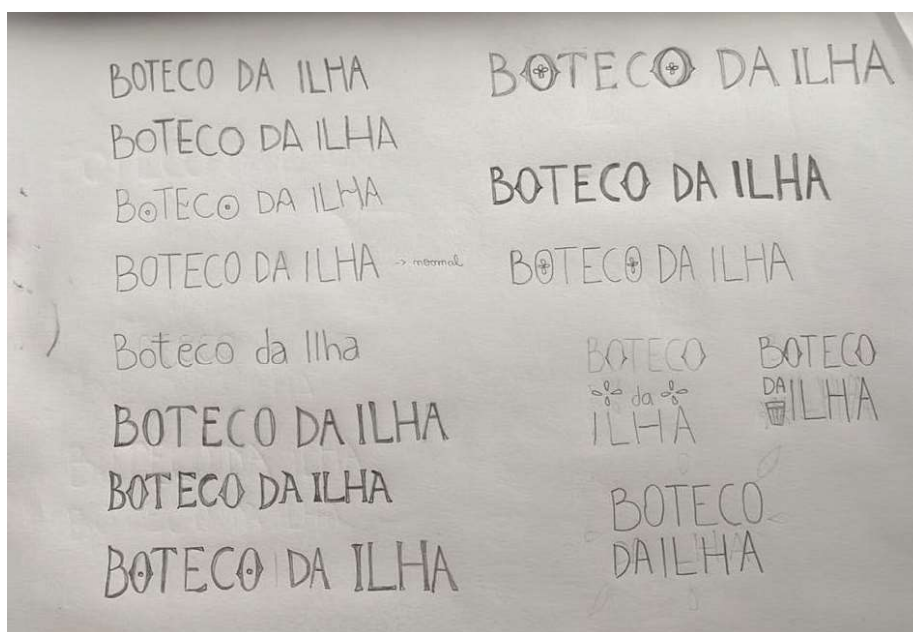 BOTECO DA ILHA
BOTECO DA ILHA
BOTECO DA ILHA
BOTECO DA ILHA -> normal
Boteco da Ilha
BOTECO DA ILHA
BOTECO DA ILHA
BOTECO DA ILHA
BOTECO DA ILHA
BOTECO DA ILHA
BOTECO DA ILHA
BOTECO
da
ILHA
BOTECO
DA
ILHA
BOTECO
DA ILHA